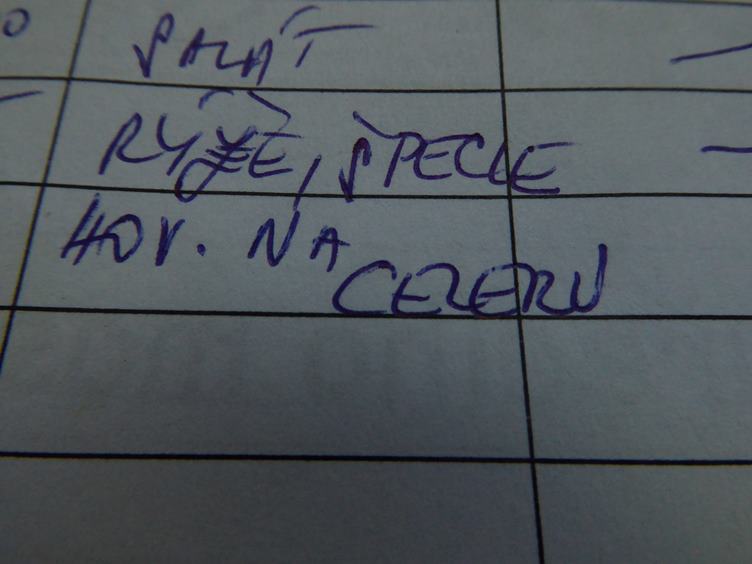 SALÁT
RÝŽE, ŠPECLE
HOV. NA
CELERU